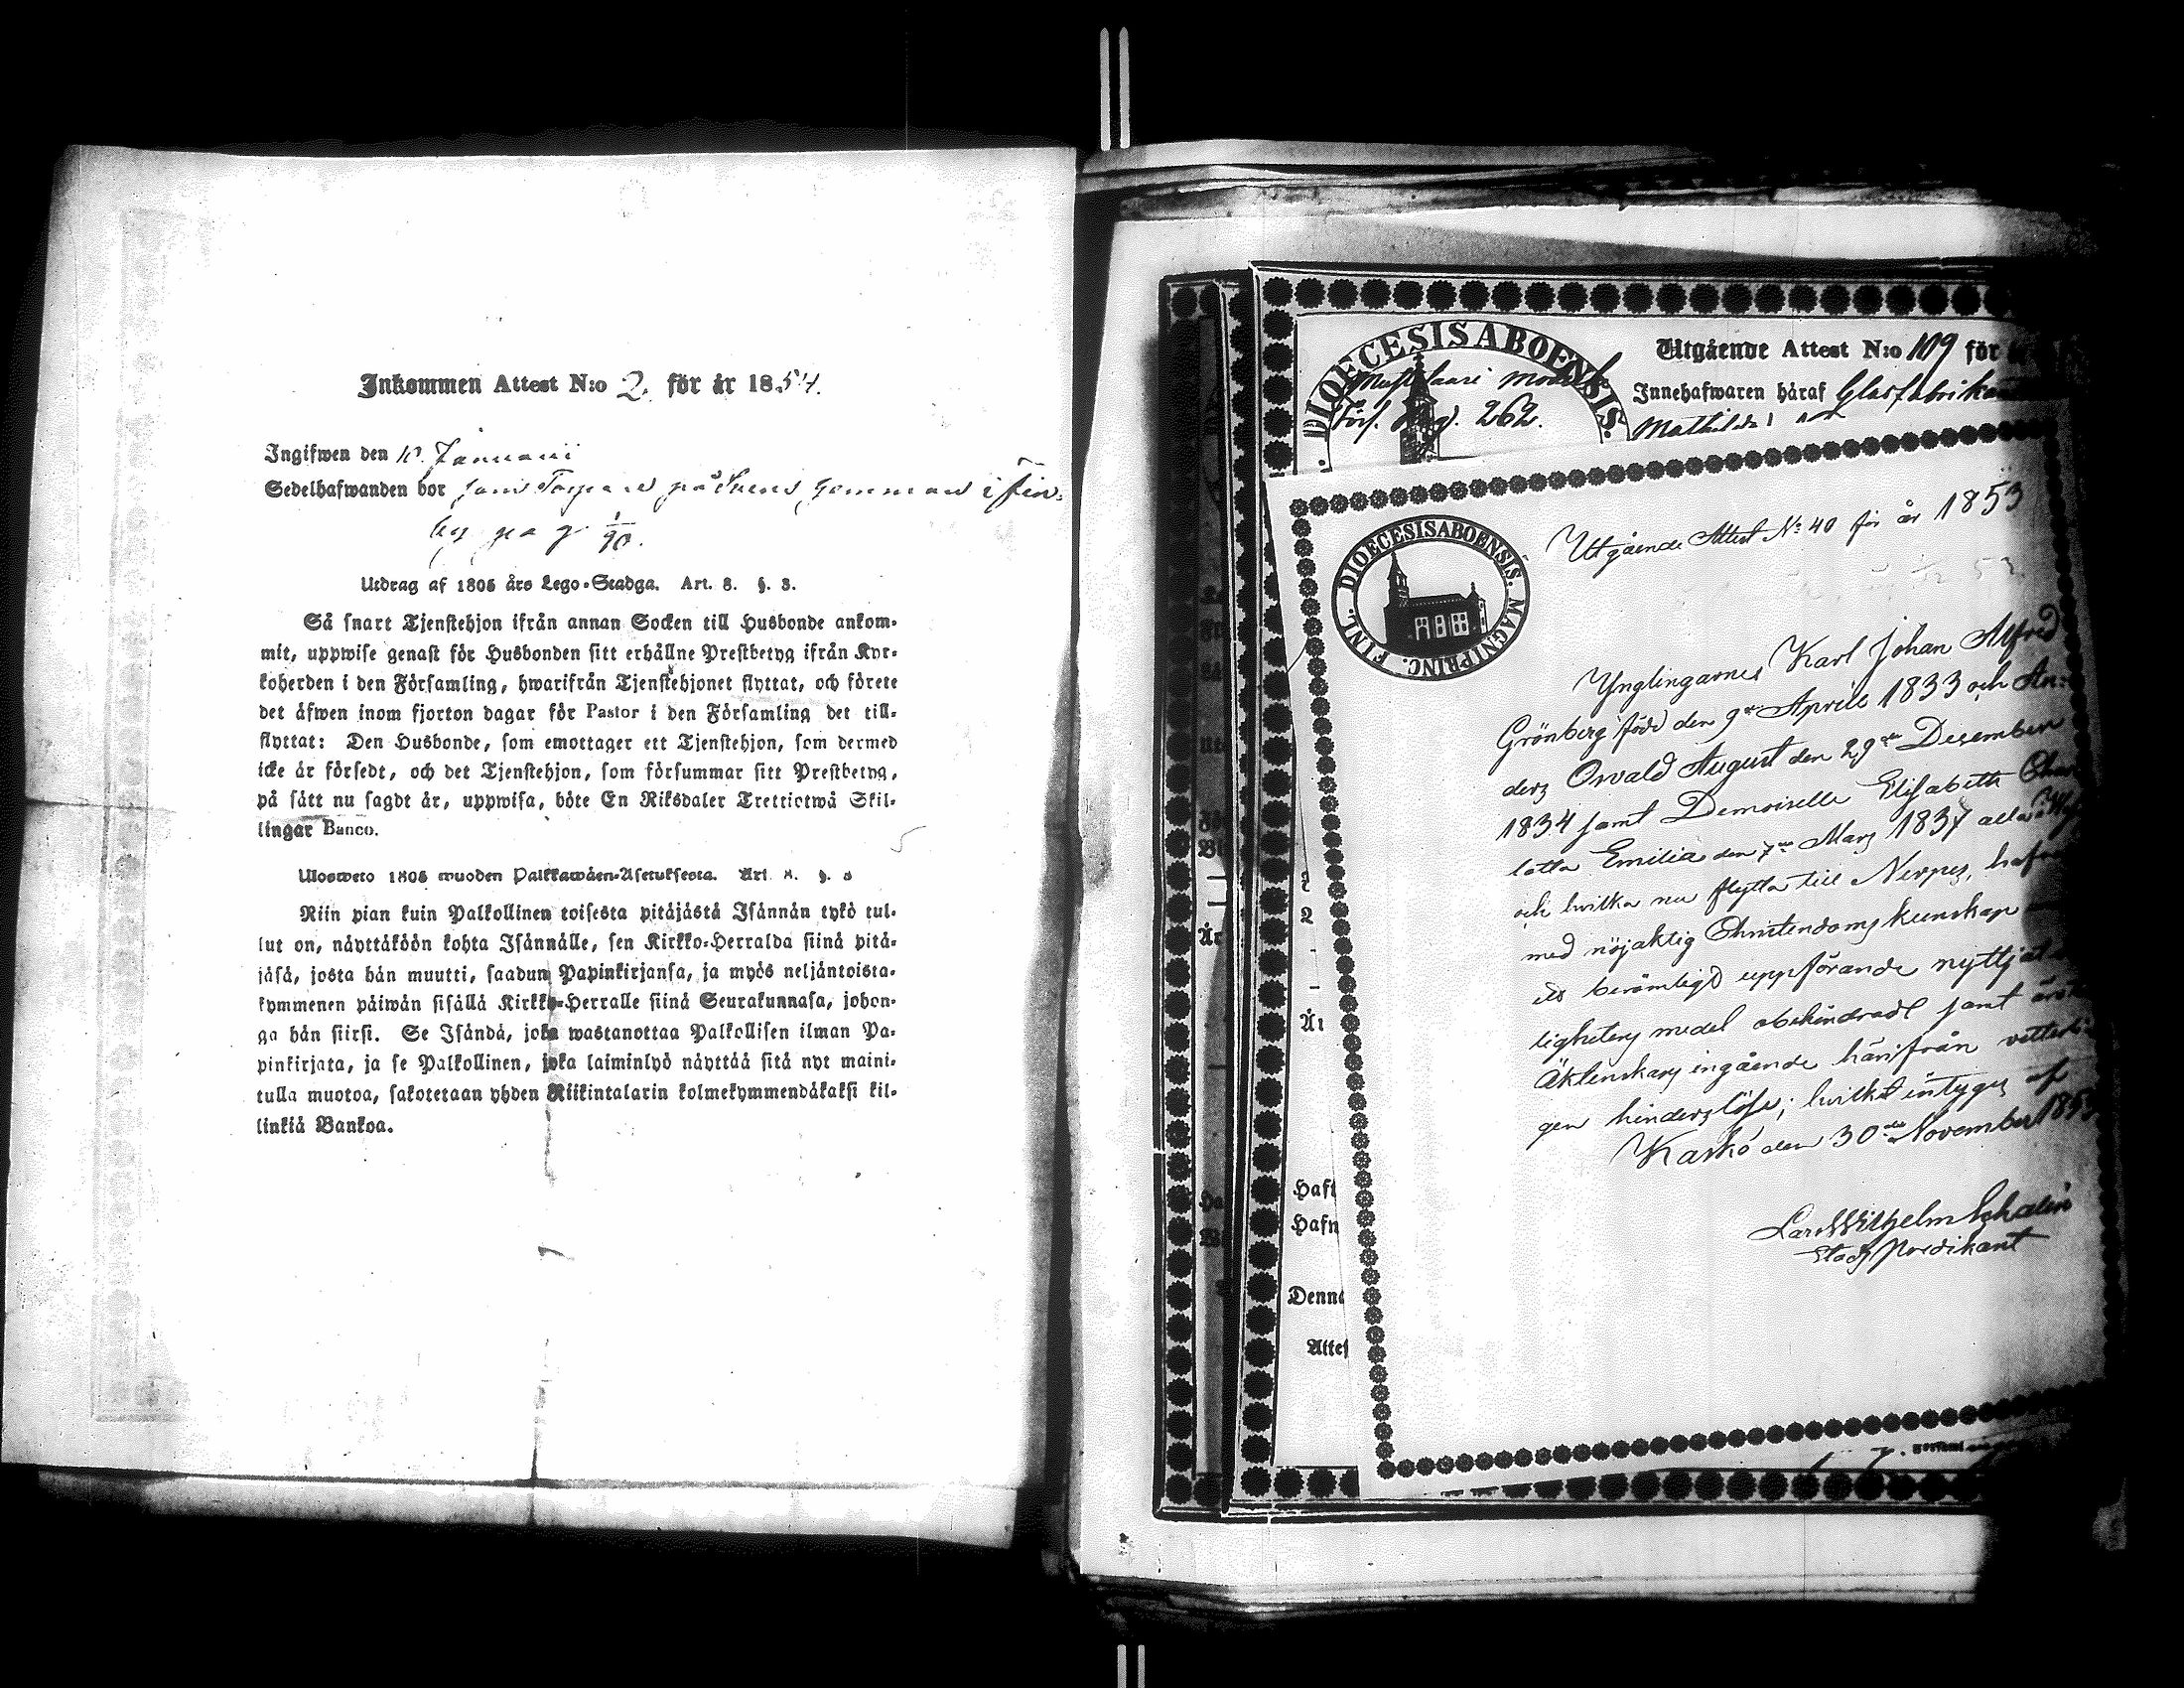 Inkommen Attest N:o 2. för år 1854.
Ingifwen den 10. Januarii
Sedelhafwanden bor som på Svens hemman i Fin-
by pag 1/90.
Utdrag af 1805 års Lego-Stadga. Art. 8. §. 3.
Så snart Tjenstehjon ifrån annan Socken till Husbonde ankom-
mit, uppwise genast för Husbonden sitt erhållne Prestbetyg ifrån Kyr-
koherden i den Församling, hwarifrån Tjenstehjonet flyttat, och förete
det äfwen inom fjorton dagar för Pastor i den Församling det till-
flyttat: Den Husbonde, som emottager ett Tjenstehjon, som dermed
icke är försedt, och det Tjenstehjon, som försummar sitt Prestbetyg,
på sätt nu sagdt är, uppwisa, böte En Riksdaler Trettiotwå Skil-
lingar Banco.
Ulosweto 1805 wuoden Palkkawäen-Asetuksesta. Art. 8. §. 3
Niin pian kuin Palkollinen toisesta pitäjästä Isännän tykö tul-
lut on, näyttäköön kohta Isännälle, sen Kirkko-Herralda siinä pitä-
jäsä, josta hän muutti, saadun Papinkirjansa, ja myös neljäntoista-
kymmenen päiwän sisällä Kirkko-Herralle siinä Seurakunnasa, johon-
ga hän siirsi. Se Isändä, joka wastanottaa Palkollisen ilman Pa-
pinkirjata, ja se Palkollinen, joka laiminlyö näyttää sitä nyt maini-
tulla muotoa, sakotetaan yhden Riikintalarin kolmekymmendäkaksi kil-
linkiä Bankoa.
DIOECESIS ABOENSIS.
Förs. pag. 262.
Utgående Attest N:o 109 för
Innehafwaren häraf Glasfabrikan
Mathilda
DIOECESIS ABOENSIS. MAGNI PRINC. FINL.
Utgående Attest No 40 för år 1853
Ynglingarnes Karl Johan Alfred
Grönberg född den 9de Aprill 1833 och An-
ders Osvald August den 29de December
1834 samt Demoiselle Elisabeth Char
lotta Emilia den 7de Mars 1837 alla
och hvilka nu flytta till Nerpes, hafva
med nöjaktig Christendoms kunskap
ett berömligt uppförande nyttjat
lighetens medel obehindradt samt äro
Äktenskaps ingående härifrån vetterli
gen hinderslöse; hvilket intygas af
Kaskö den 30de November 1853
Lars Wilhelm Schalin
Stads Predikant
Haft
Hafw
Denna
Attes